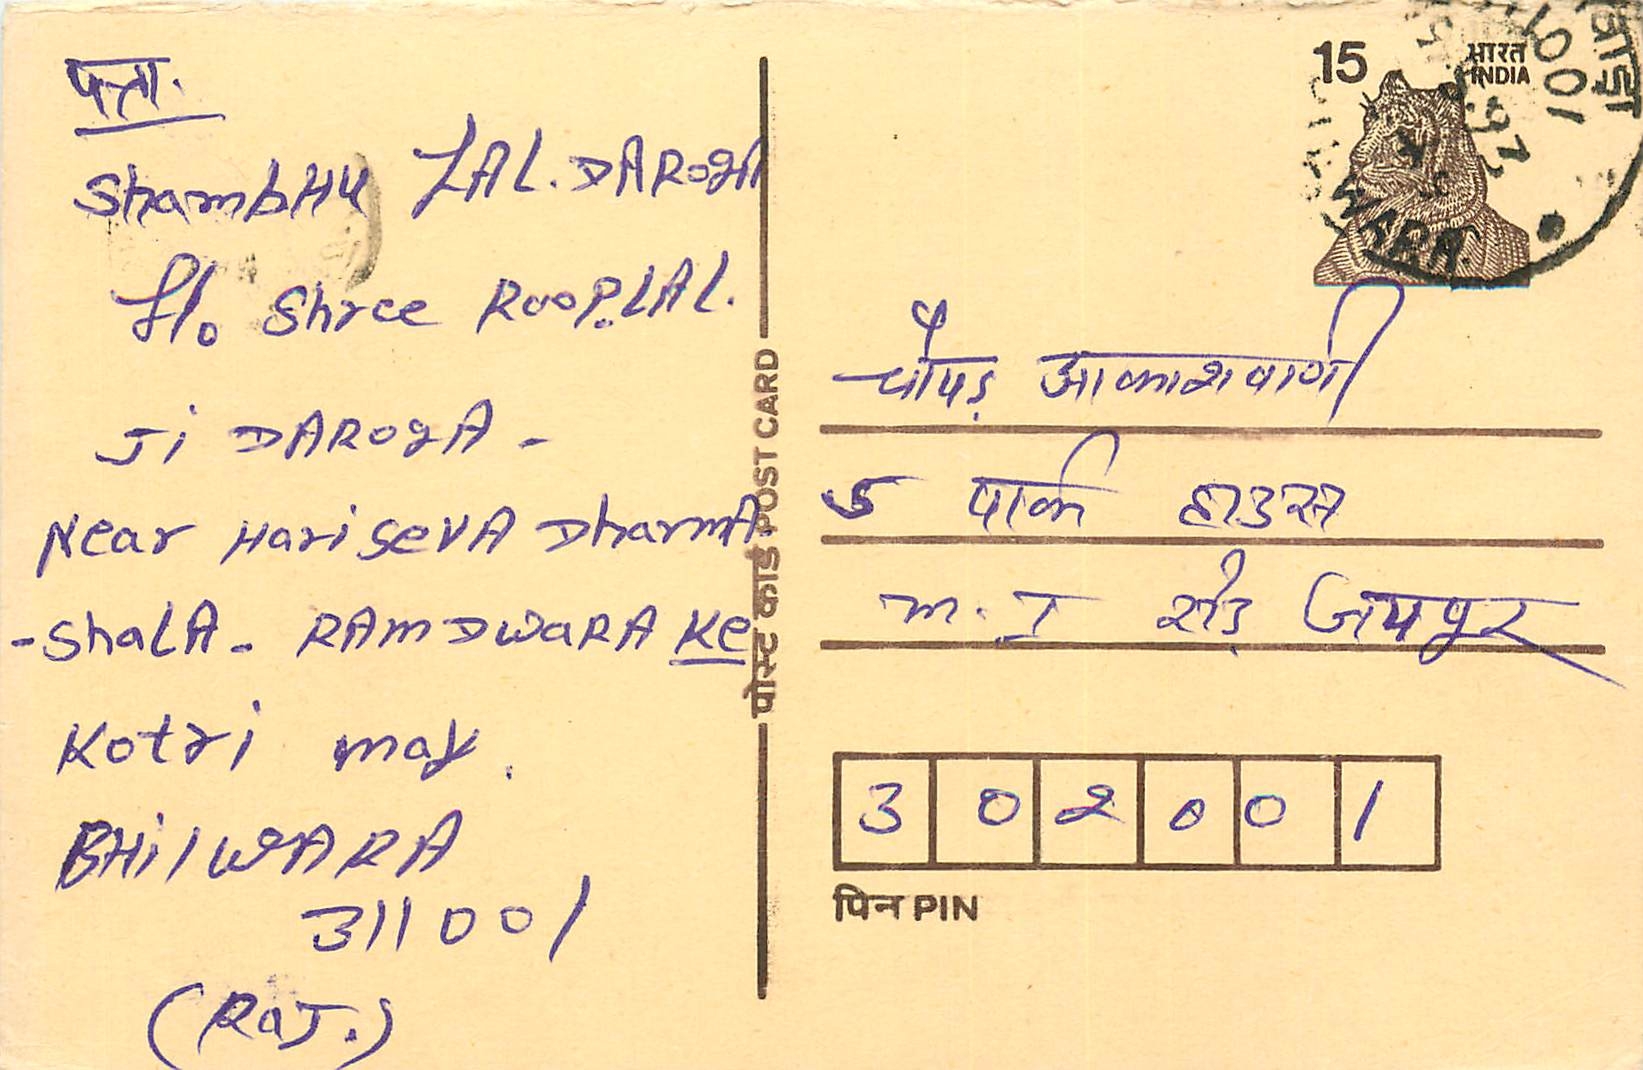 पत्ता.
ShambHU LAL. DAROGA
S/o Shree ROOP.LAL.
Ji DAROGA -
Near Hari SeVA DharmA
- ShaLA - RAMDWaRA Ke
Kotri
BHilWARA
311001
(RaJ.)
पोस्ट कार्ड POST CARD
15
भारत
INDIA
WARA.
चौपड़ आकाशवाणी
5 पार्क हाउस
m. I रोड़ जयपुर
302001
पिन PIN